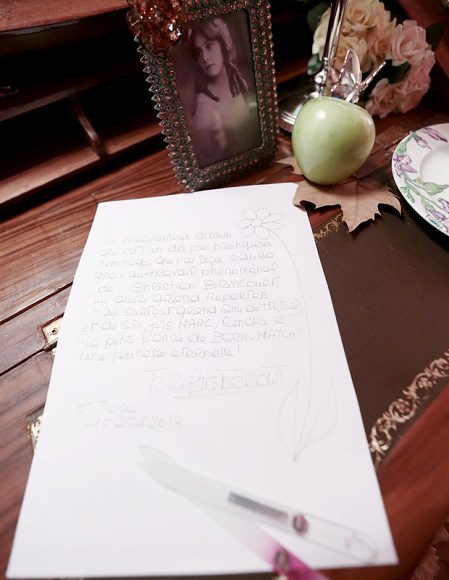 Ce merveilleux album
qui est l'un des plus prestigieux
hommages que j'ai reçus, saura
grâce au travail phénoménal
de Christian Brincourt,
aussi grand Reporter
mais surtout grand ami de
et de son fils MARC, rendre à
"la petite fiancée de PARIS-MATCH"
une jeunesse éternelle !
Brigitte Bardot
St Tropez
2013